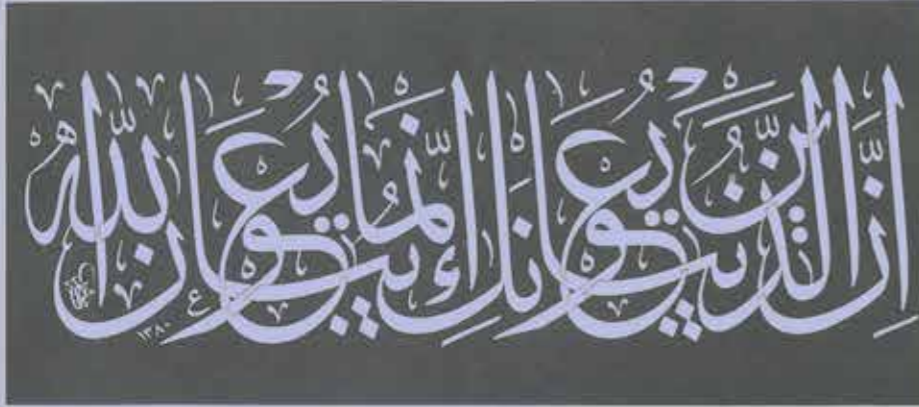 إِنَّ الَّذِينَ يُبَايِعُونَكَ إِنَّمَا يُبَايِعُونَ اللّٰهَ
١٣٨٠